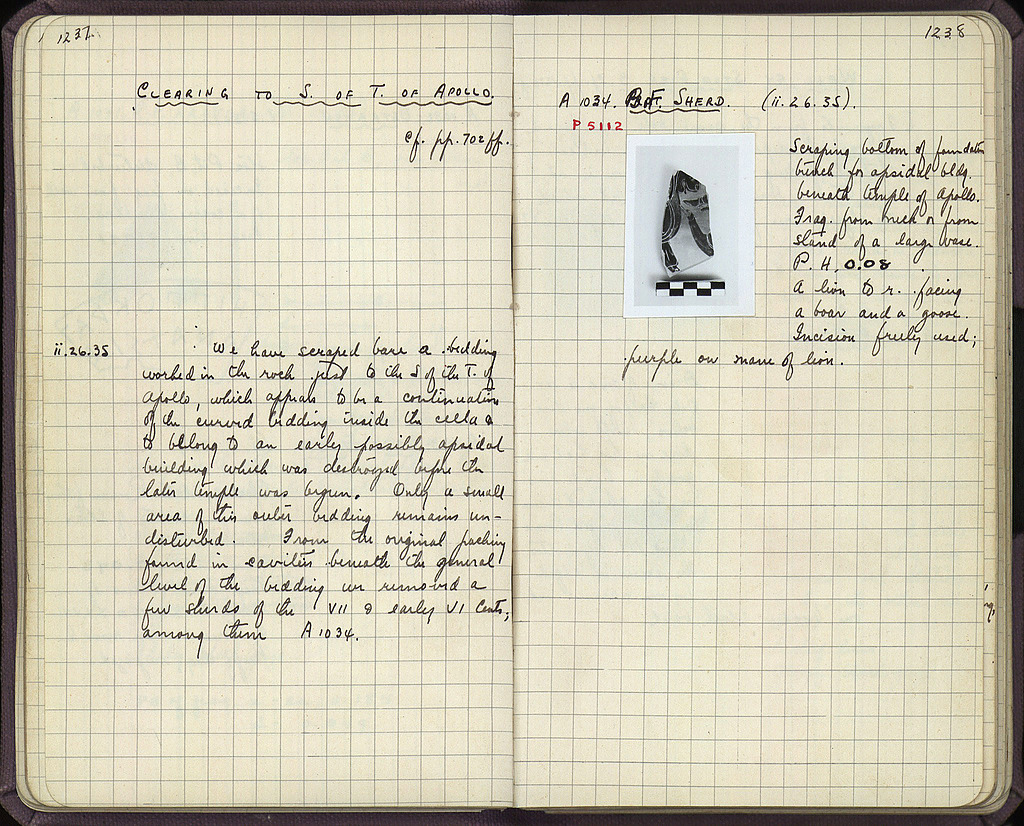 1237
CLEARING TO S. OF T. OF APOLLO.
cf. pp. 702 ff.
ii.26.35
We have scraped bare a bedding
worked in the rock just to the S of the T. of
Apollo, which appears to be a continuation
of the curved bedding inside the cella &
to belong to an early possibly apsidal
building which was destroyed before the
later temple was begun. Only a small
area of this outer bedding remains un-
disturbed. From the original packing
found in cavities beneath the general
level of the bedding we removed a
few sherds of the VII & early VI Cents;
among them A 1034.
1238
A 1034. B.F. SHERD. (ii.26.35).
P 5112
Scraping bottom of foundation
trench for apsidal bldg.
beneath temple of Apollo.
Frag. from neck or from
stand of a large vase.
P. H. 0.08
A lion to r. facing
a boar and a goose.
Incision freely used;
purple on mane of lion.